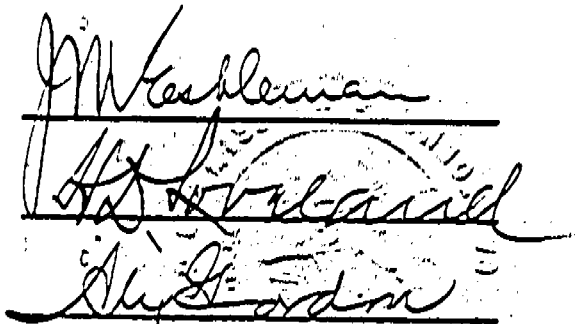 J M Eshleman
H D Loveland
Alex Gordon